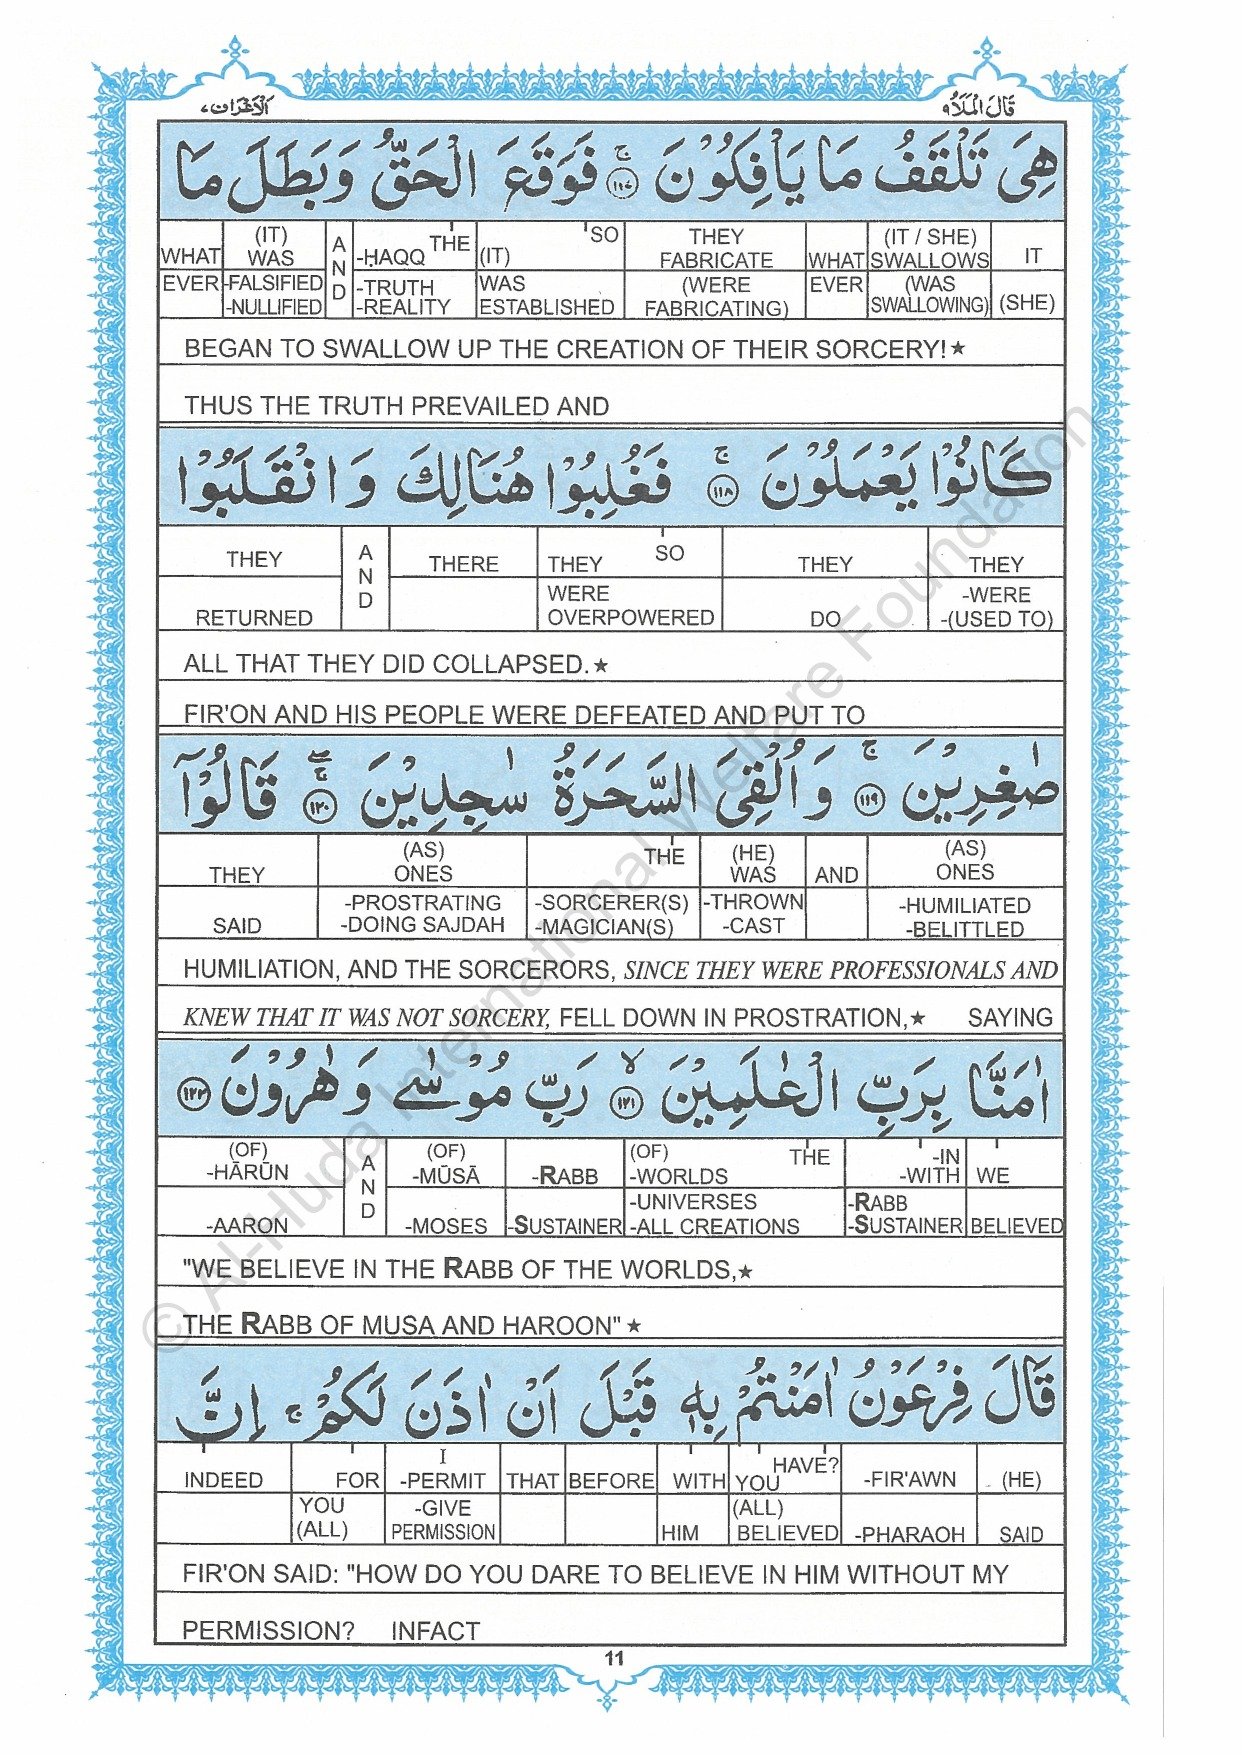 قَالَ الْمَلَاُ ۹
الْاَعْرَاف ۷
هِىَ تَلْقَفُ مَا يَاْفِكُوْنَ ۚ ﴿۱۱۷﴾ فَوَقَعَ الْحَقُّ وَبَطَلَ مَا
WHAT (IT) WAS AND -ḤAQQ THE (IT) SO THEY FABRICATE WHAT (IT / SHE) SWALLOWS IT
EVER -FALSIFIED -NULLIFIED -TRUTH -REALITY WAS ESTABLISHED (WERE FABRICATING) EVER (WAS SWALLOWING) (SHE)
BEGAN TO SWALLOW UP THE CREATION OF THEIR SORCERY!★
THUS THE TRUTH PREVAILED AND
كَانُوْا يَعْمَلُوْنَ ۚ ﴿۱۱۸﴾ فَغُلِبُوْا هُنَالِكَ وَ انْقَلَبُوْا
THEY AND THERE THEY SO THEY THEY
RETURNED WERE OVERPOWERED DO -WERE -(USED TO)
ALL THAT THEY DID COLLAPSED.★
FIR'ON AND HIS PEOPLE WERE DEFEATED AND PUT TO
صٰغِرِيْنَ ۚ ﴿۱۱۹﴾ وَ اُلْقِىَ السَّحَرَةُ سٰجِدِيْنَ ۚۖ ﴿۱۲۰﴾ قَالُوْۤا
THEY (AS) ONES THE (HE) WAS AND (AS) ONES
SAID -PROSTRATING -DOING SAJDAH -SORCERER(S) -MAGICIAN(S) -THROWN -CAST -HUMILIATED -BELITTLED
HUMILIATION, AND THE SORCERORS, SINCE THEY WERE PROFESSIONALS AND
KNEW THAT IT WAS NOT SORCERY, FELL DOWN IN PROSTRATION,★ SAYING
اٰمَنَّا بِرَبِّ الْعٰلَمِيْنَ ۙ ﴿۱۲۱﴾ رَبِّ مُوْسٰى وَ هٰرُوْنَ ﴿۱۲۲﴾
(OF) -HĀRŪN AND (OF) -MŪSĀ -RABB (OF) -WORLDS THE -IN -WITH WE
-AARON -MOSES -SUSTAINER -UNIVERSES -ALL CREATIONS -RABB -SUSTAINER BELIEVED
"WE BELIEVE IN THE RABB OF THE WORLDS,★
THE RABB OF MUSA AND HAROON"★
قَالَ فِرْعَوْنُ اٰمَنْتُمْ بِهٖ قَبْلَ اَنْ اٰذَنَ لَكُمْ ۚ اِنَّ
INDEED FOR I -PERMIT THAT BEFORE WITH YOU HAVE? -FIR'AWN (HE)
YOU (ALL) -GIVE PERMISSION HIM (ALL) BELIEVED -PHARAOH SAID
FIR'ON SAID: "HOW DO YOU DARE TO BELIEVE IN HIM WITHOUT MY
PERMISSION? INFACT
11
© Al-Huda International Welfare Foundation